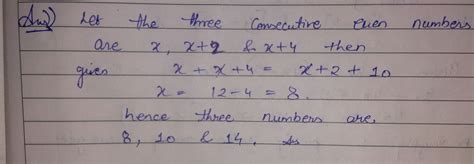 Ans) Let the three consecutive even numbers
are x, x+2 & x+4 then
given x + x+4 = x+2 + 10
x = 12-4 = 8.
hence three numbers are,
8, 10 & 14.